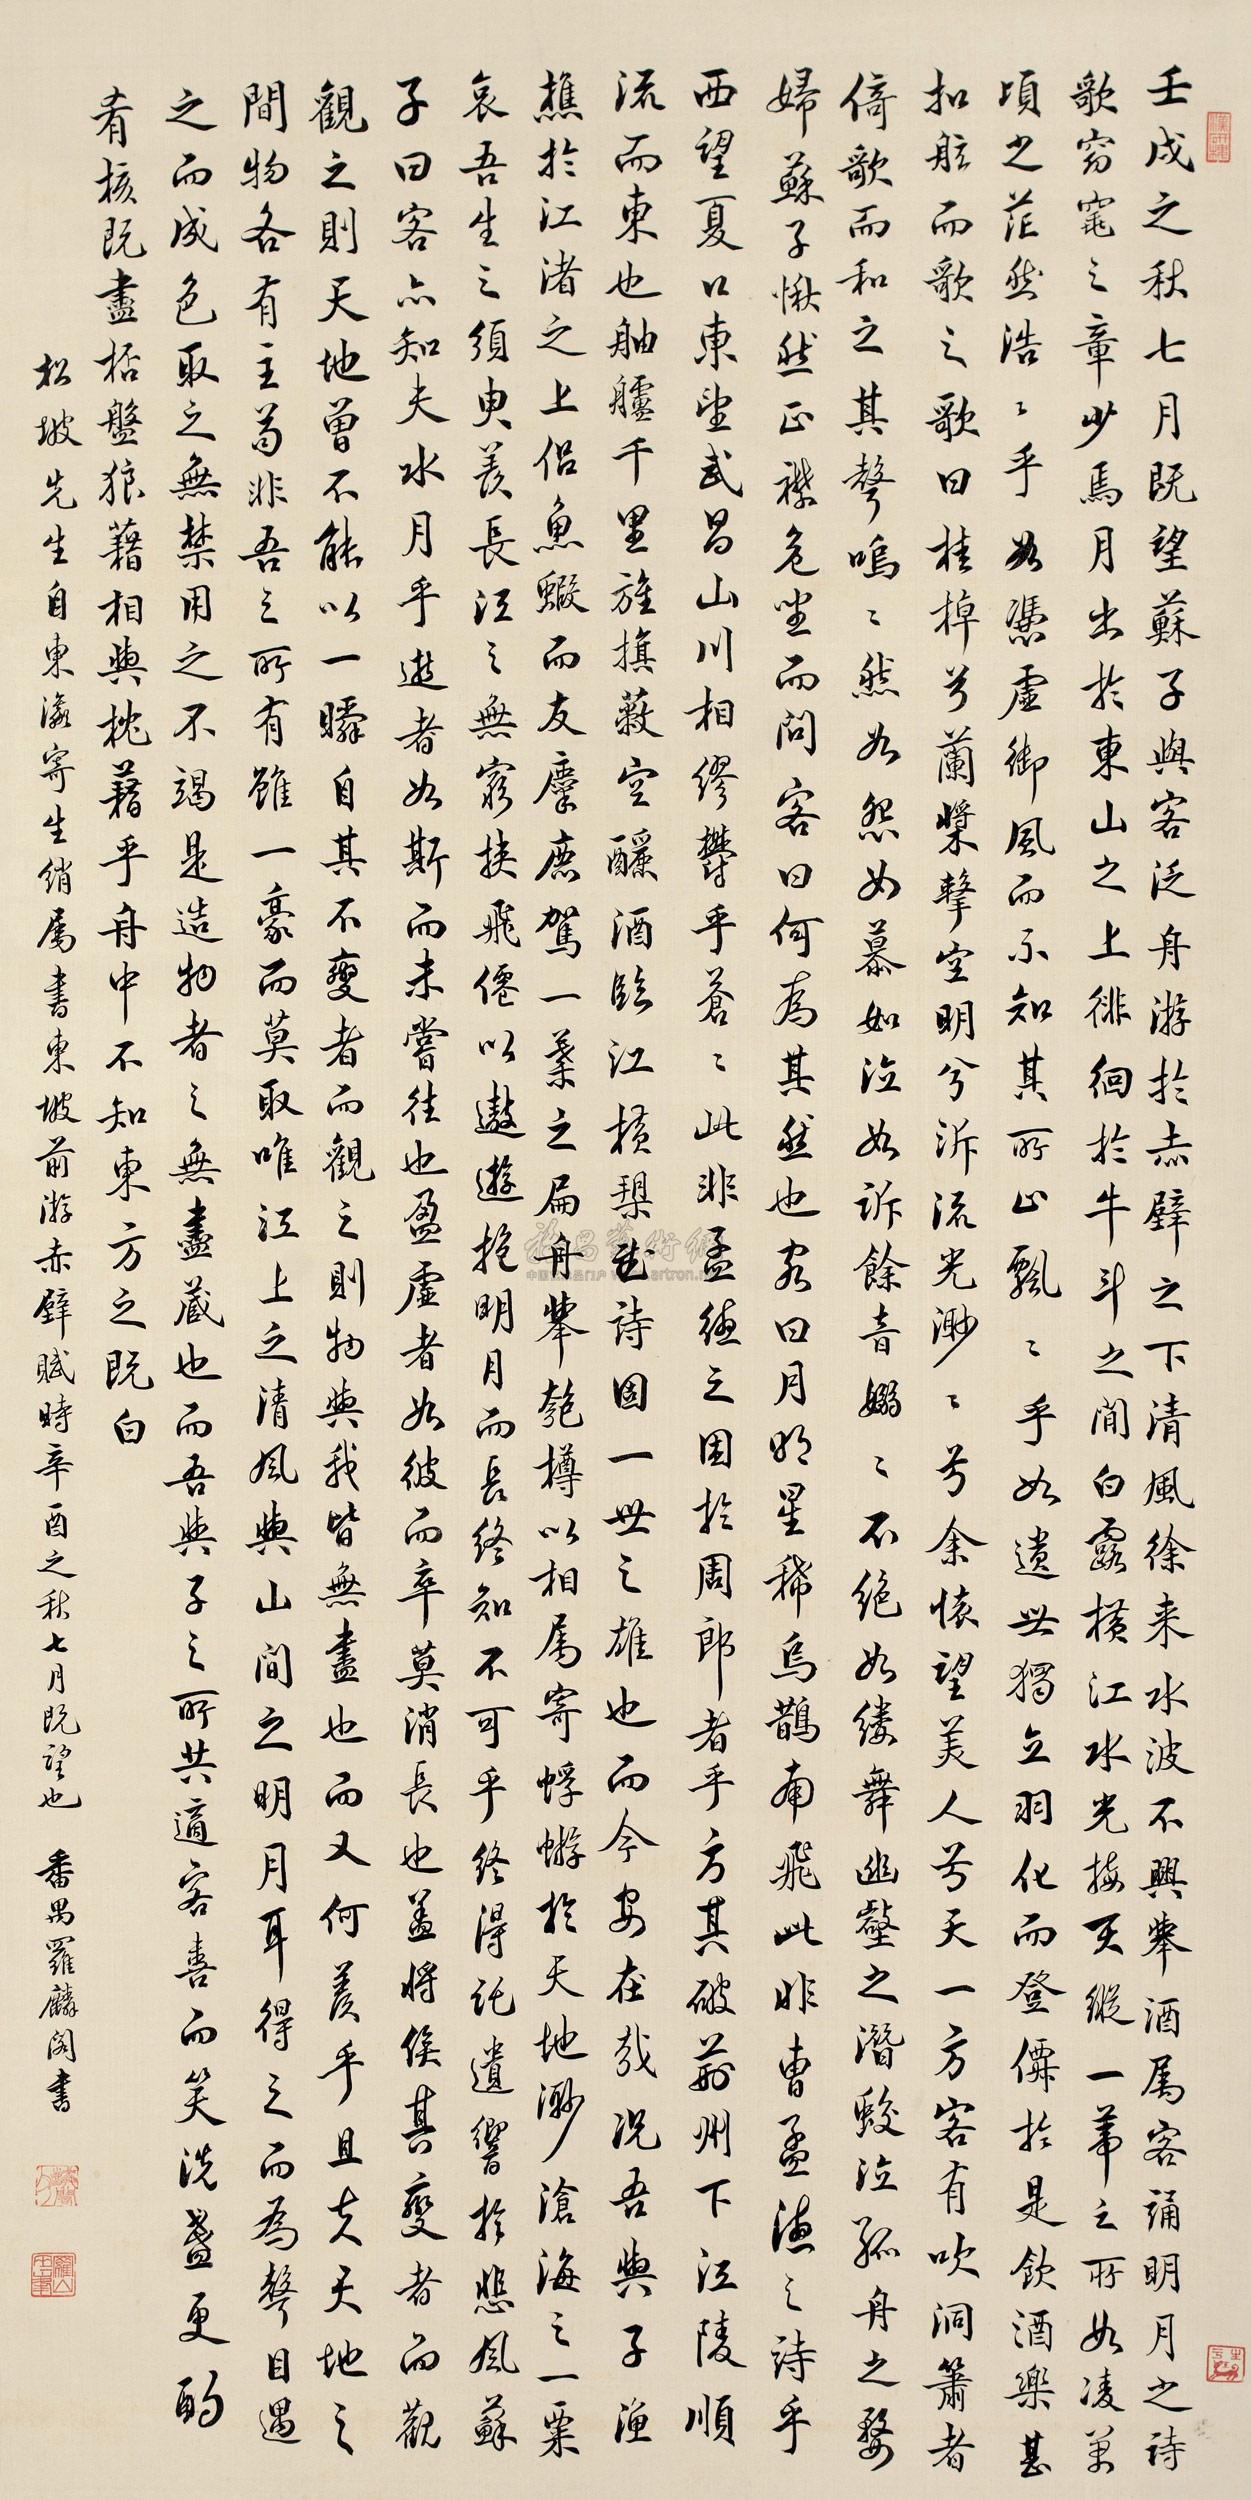 壬戌之秋七月既望蘇子與客泛舟游於赤壁之下清風徐来水波不興舉酒属客誦明月之詩
歌窈窕之章少焉月出於東山之上徘徊於牛斗之間白露横江水光接天縱一葦之所如凌萬
頃之茫然浩〻乎如憑虛御風而不知其所止飄〻乎如遺世獨立羽化而登僊於是飲酒樂甚
扣舷而歌之歌曰桂棹兮蘭槳擊空明兮泝流光渺〻兮余懷望美人兮天一方客有吹洞簫者
倚歌而和之其聲嗚〻然如怨如慕如泣如訴餘音嫋〻不絶如縷舞幽壑之潛蛟泣孤舟之嫠
婦蘇子愀然正襟危坐而問客曰何為其然也客曰月明星稀烏鵲南飛此非曹孟德之詩乎
西望夏口東望武昌山川相繆鬱乎蒼〻此非孟德之困於周郎者乎方其破荊州下江陵順
流而東也舳艫千里旌旗蔽空釃酒臨江横槊賦詩固一世之雄也而今安在哉况吾與子漁
樵於江渚之上侣魚蝦而友麋鹿駕一葉之扁舟舉匏樽以相属寄蜉蝣於天地渺滄海之一粟
哀吾生之須臾羨長江之無窮挟飛僊以遨遊抱明月而長終知不可乎終得託遺響於悲風蘇
子曰客亦知夫水月乎逝者如斯而未嘗往也盈虛者如彼而卒莫消長也盖将自其變者而觀
觀之則天地曾不能以一瞬自其不變者而觀之則物與我皆無盡也而又何羨乎且夫天地之
間物各有主苟非吾之所有雖一豪而莫取唯江上之清風與山間之明月耳得之而為聲目遇
之而成色取之無禁用之不竭是造物者之無盡藏也而吾與子之所共適客喜而笑洗盞更酌
肴核既盡杯盤狼藉相與枕藉乎舟中不知東方之既白
松坡先生自東瀛寄生綃属書東坡前游赤壁賦時辛酉之秋七月既望也 番禺羅麟閣書